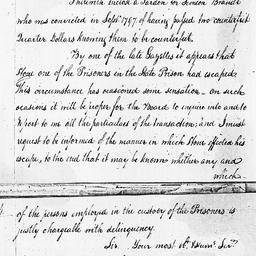 inclosed a Pardon for Simeon Brandt
who was convicted in Sept. 1797 of having passed two counterfeit
Quarter Dollars knowing them to be counterfeit.
By one of the late Gazettes it appears that
Stone one of the Prisoners in the State Prison had escaped;
This circumstance has occasioned some sensation - on such
occasions it will be proper for the Board to inquire into and to
Report to me all the particulars of the transaction: and I must
request to be informed of the manner in which Stone effected his
escape, to the end that it may be known whether any and
which
of the persons employed in the custody of the Prisoners is
justly chargeable with delinquency.
Sir, Your most ob. Servt.